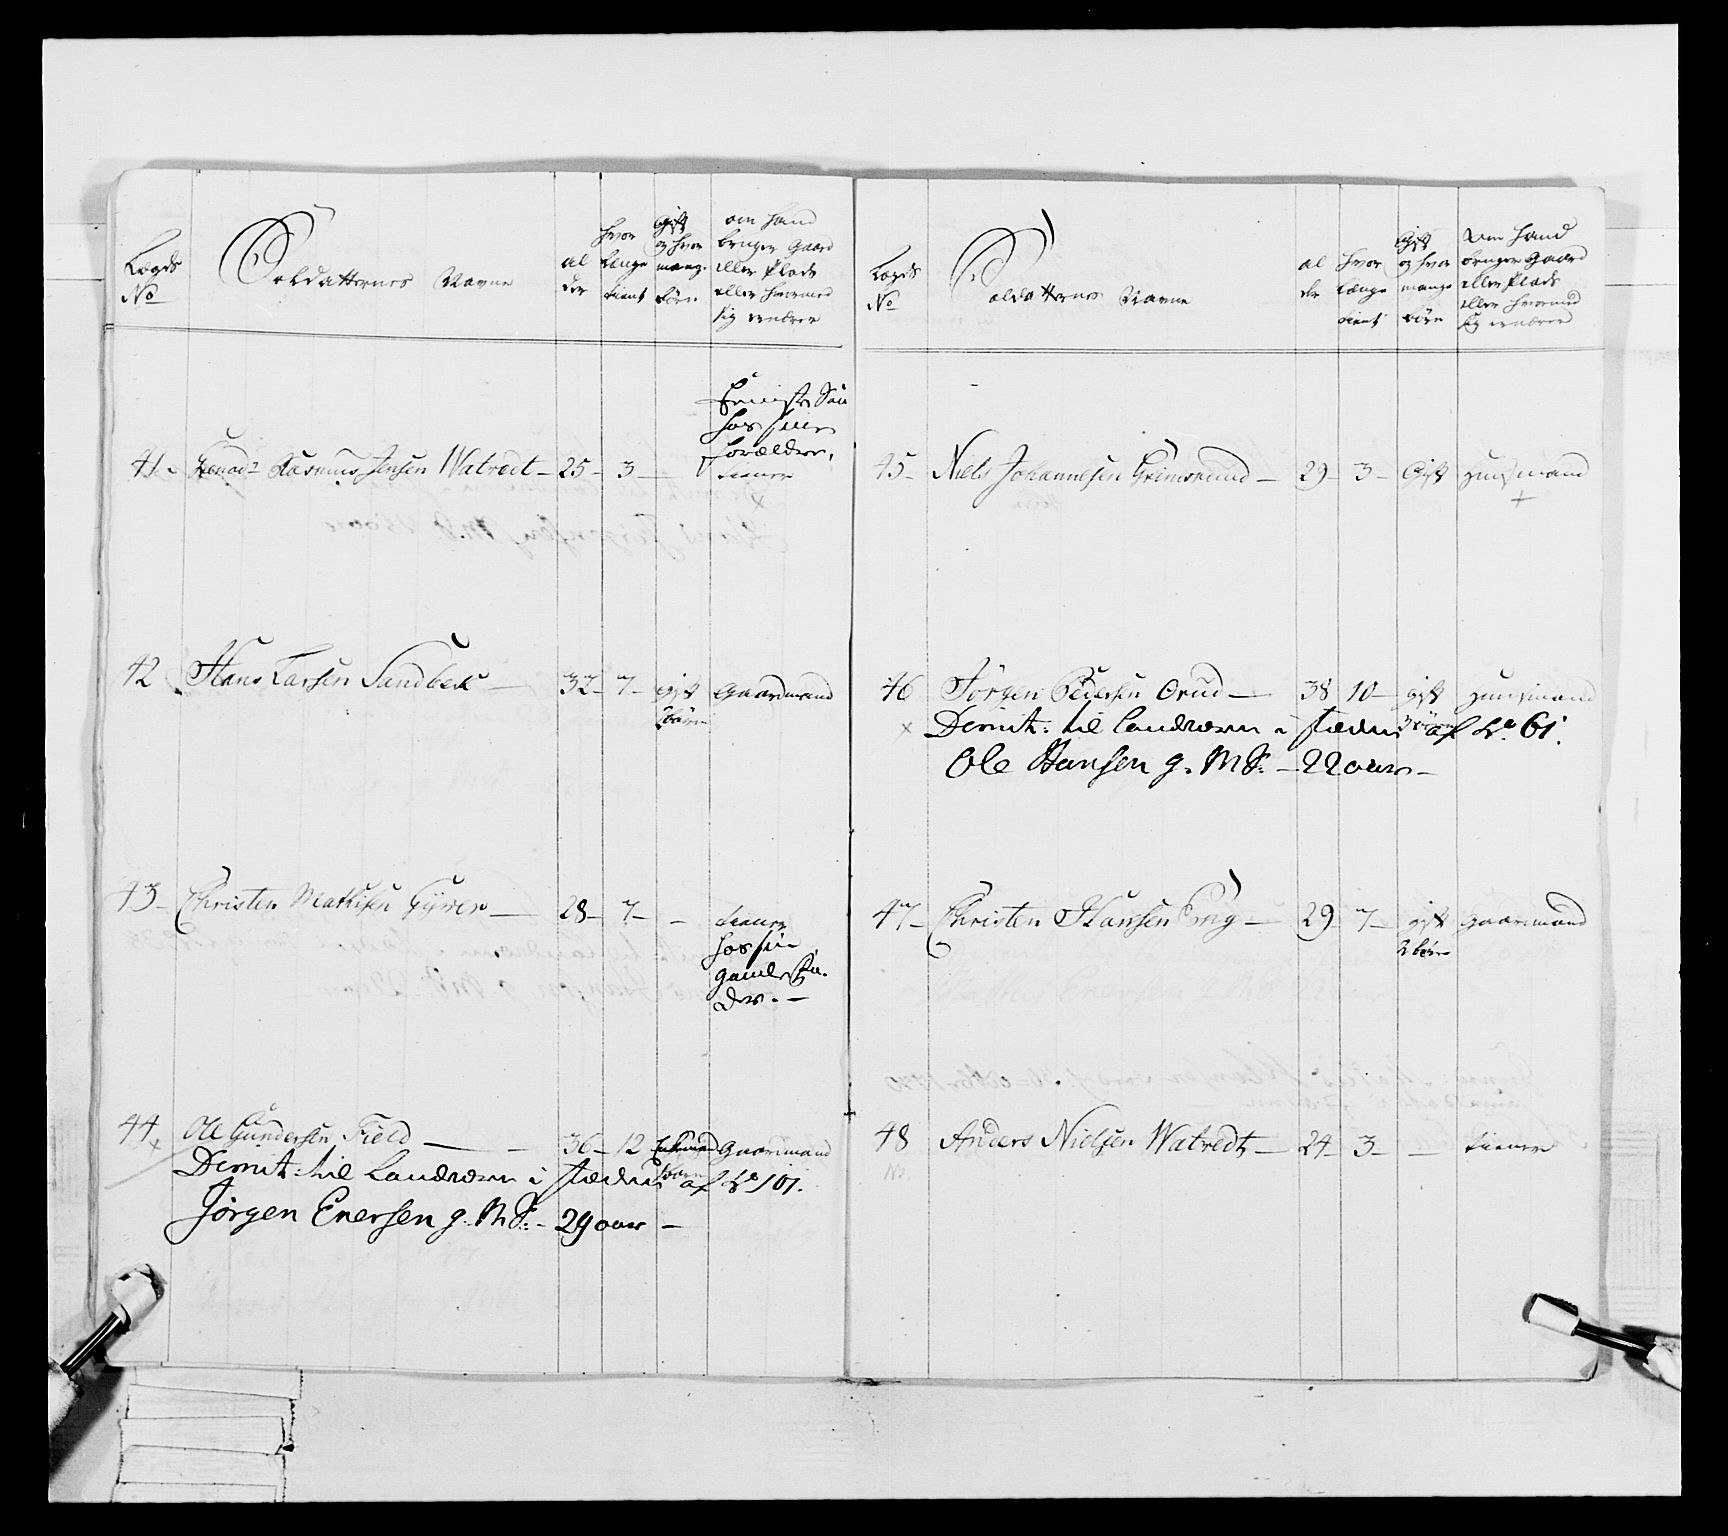 Lægds No
Soldatternes Navne
al der
hvor længe tient
Gift og hvor mang. Börn
om hand bruger Gaard eller Plads eller hvormed sig ernærer
41 Rasmus Jensen Watvedt 25 3
hos sine
Forældre,
tiener
42 Hans Larsen Sandbek 32 7 gift Gaardmand
börn
43 Christen Mathisen 28 7 - tiener
hos sin
gamle
44 Ole Gundersen Field 36 12 Gaardmand
Dimit: til Landværn i steden af No 101.
Jörgen Enersen g. M S: 29 aar
Lægds No
Soldatternes Navne
al der
hvor længe tient
Gift og hvor mange Börn
om hand bruger Gaard eller Plads eller hvormed sig ernærer
45 Niels Johannesen Grimsrund 29 3 Gift Huusmand
46 Jörgen Pedersen Orud 38 10 gift Huusmand
Dimit: til Landværn i steden af No 61.
Ole Hansen g. M S: 22 aar
47 Christen Hansen Eng 29 7 gift Gaardmand
2 börn
48 Anders Nielsen Watvedt 24 3 - tiener